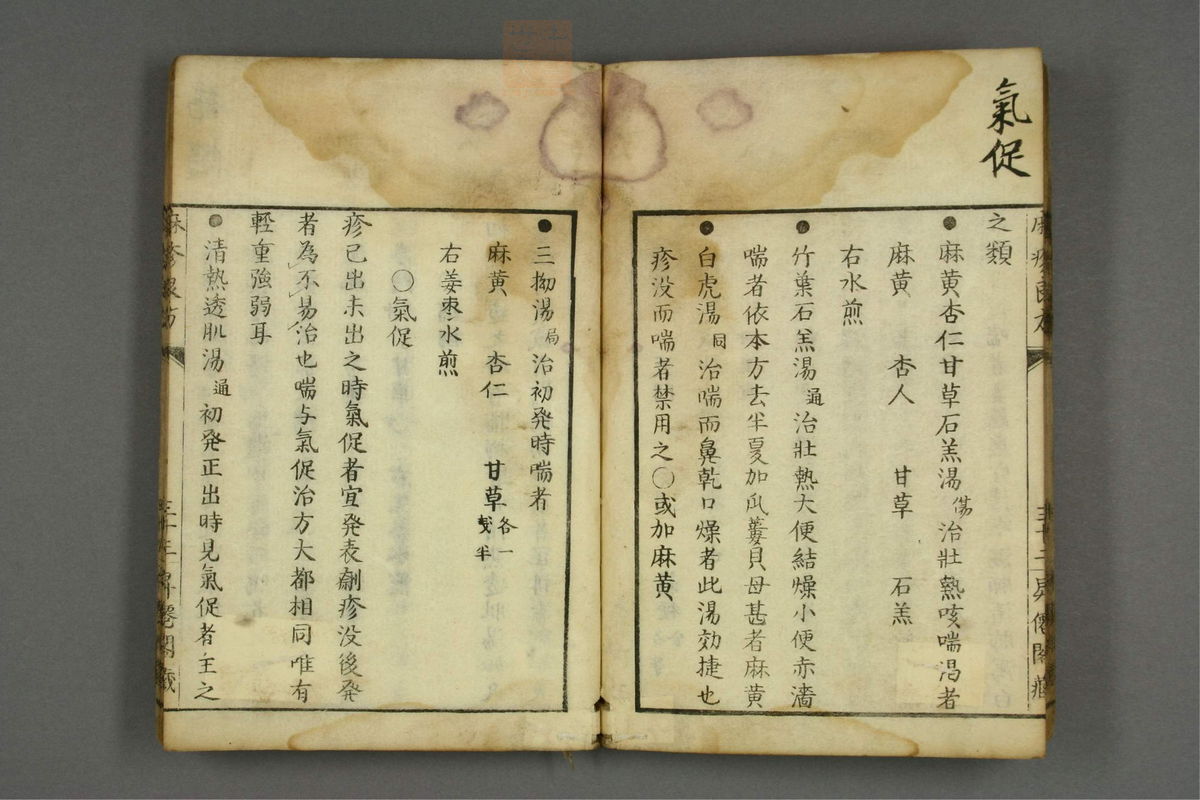 氣促
之類
●麻黄杏仁甘草石羔湯傷治壮熱咳喘渇者
麻黄 杏人 甘草 石羔
右水煎
●竹葉石羔湯通治壮熱大便結燥小便赤濇
喘者依本方去半夏加瓜蔞貝母甚者麻黄
●白虎湯同治喘而鼻乾口燥者此湯効捷也
疹没而喘者禁用之○或加麻黄
●三拗湯局治初発時喘者
麻黄 杏仁 甘草各一戔半
右姜枣水煎
○氣促
疹已出未出之時氣促者宜発表劑疹没後発
者為不易治也喘与氣促治方大都相同唯有
軽重強弱耳
●清熱透肌湯通初発正出時見氣促者主之